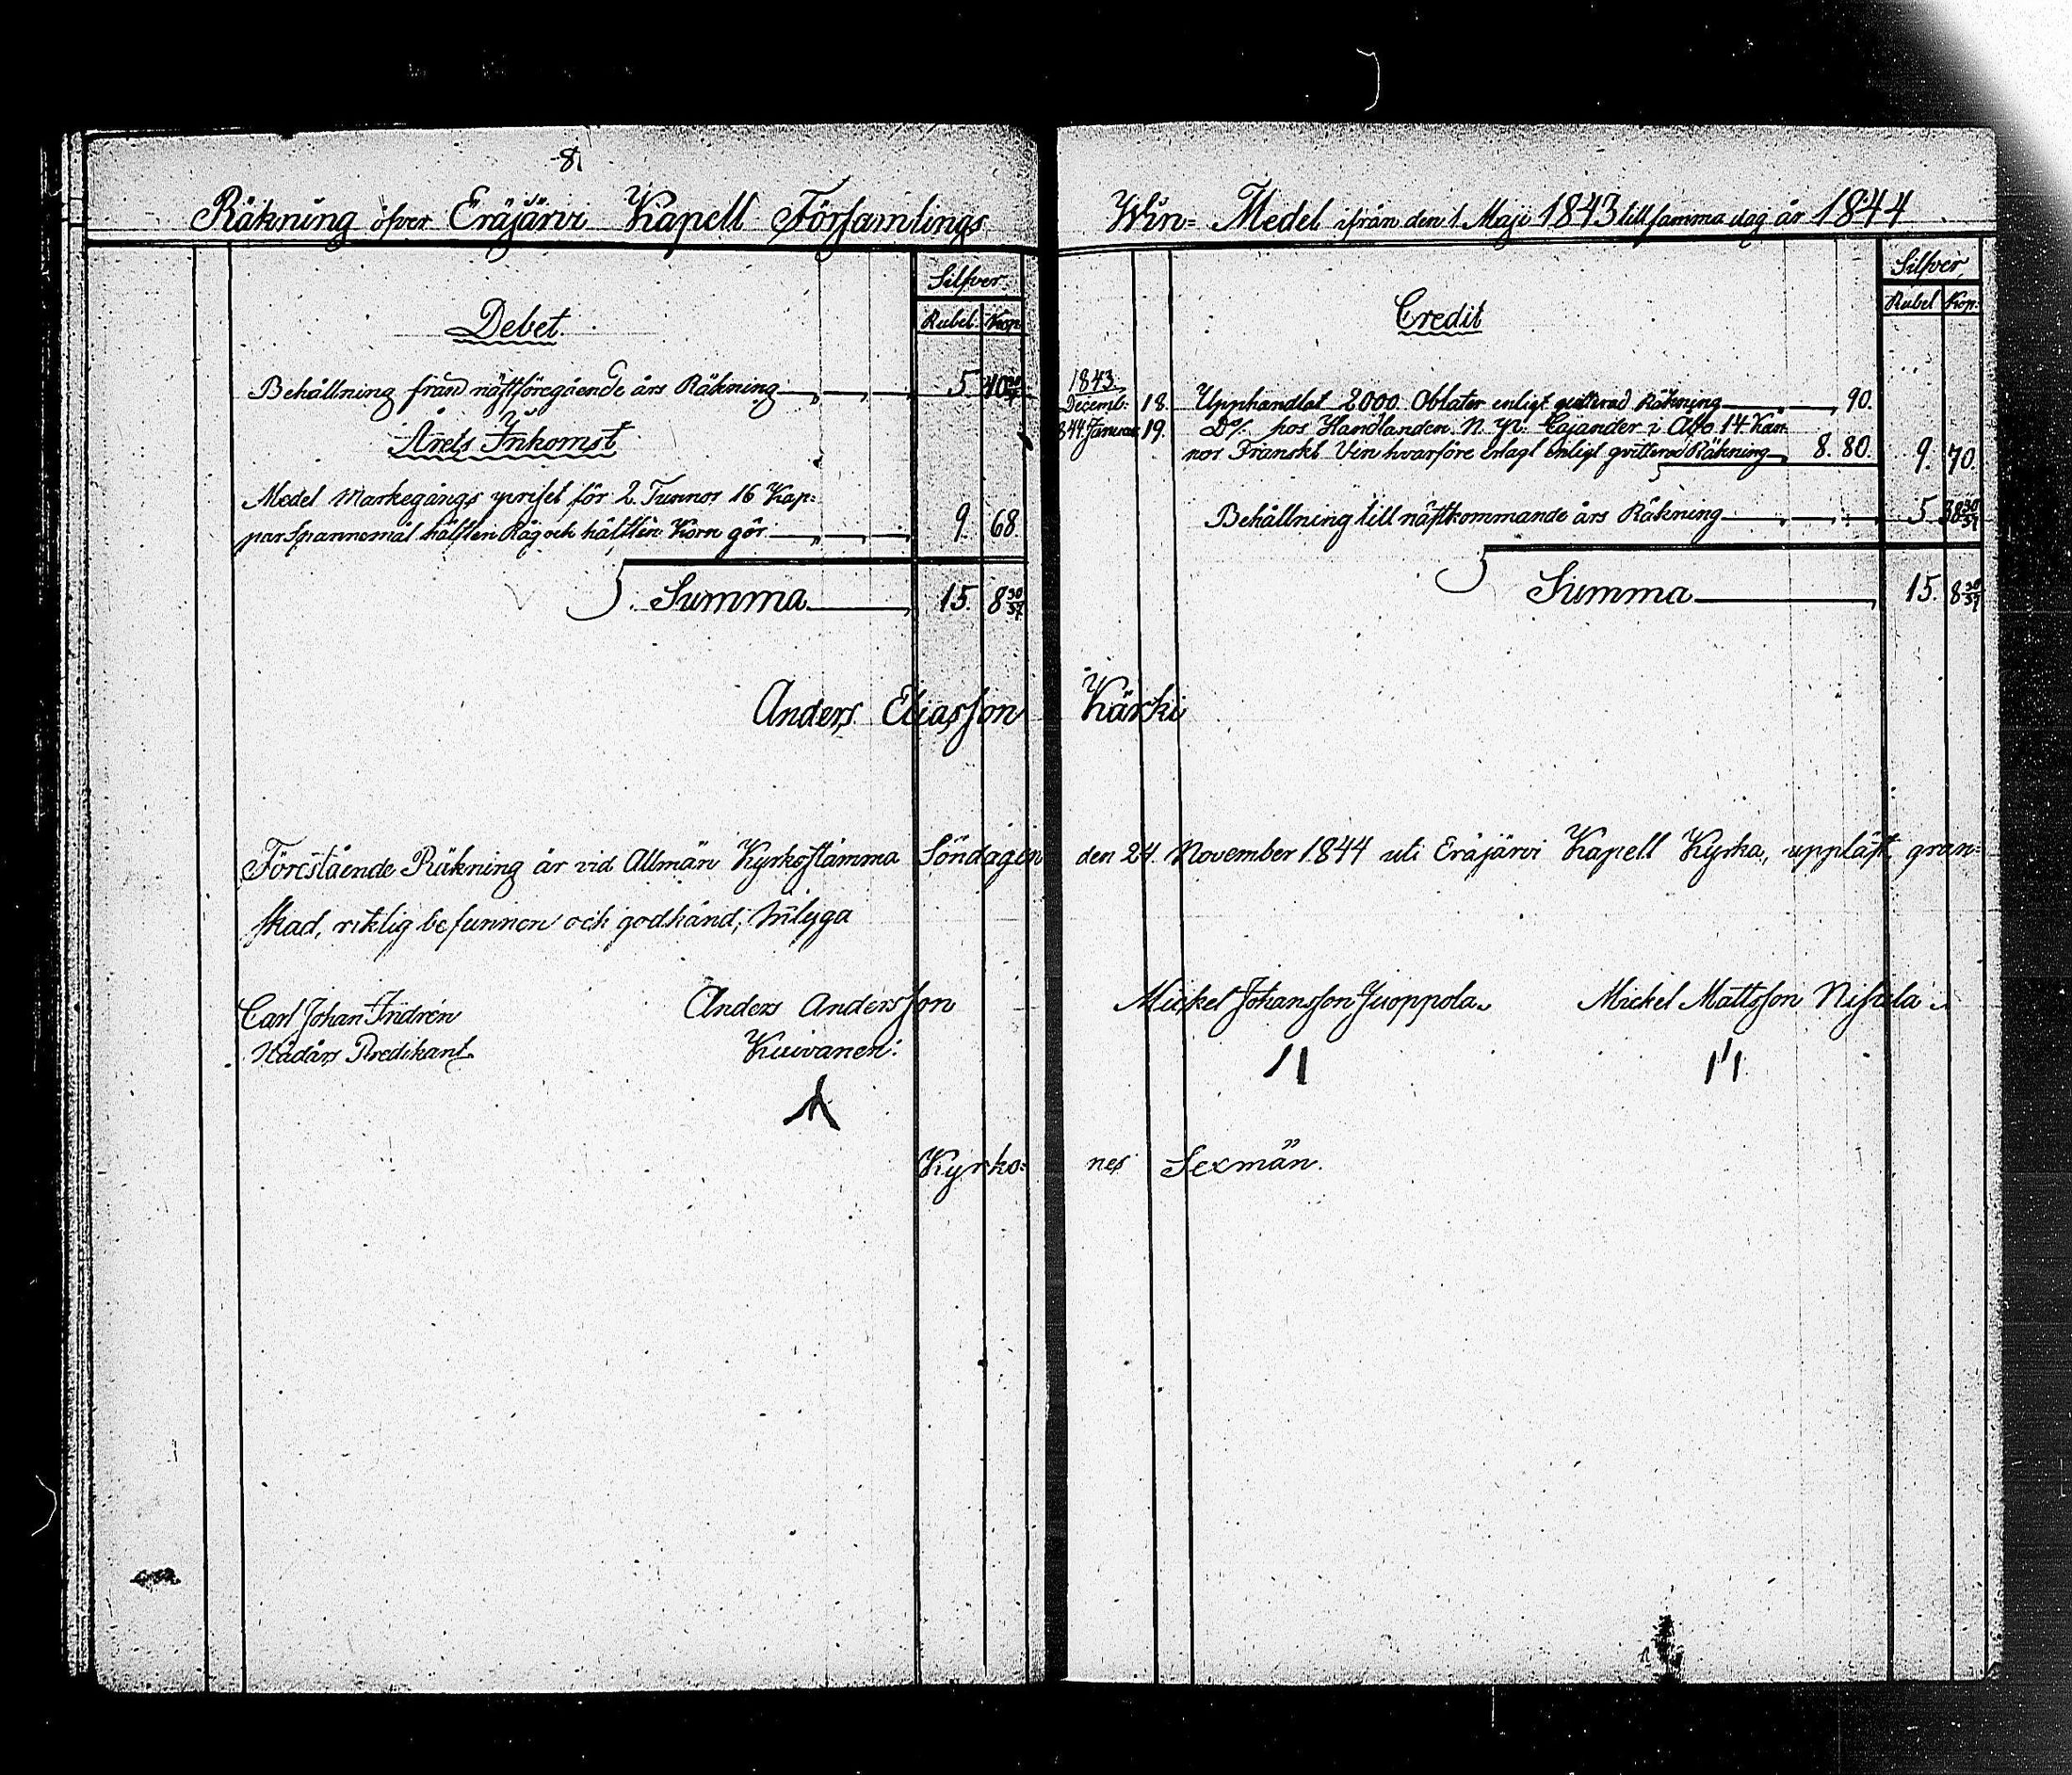 8
Räkning öfver Eräjärvi Kapell Församlings
Silfver.
Debet.
Rubel. Kop.
Behållning från nästföregående års Räkning 5. 40 30/37
Årets Inkomst
Medel Markegångs priset för 2. Tunnor 16 Kap=
par Spannemål hälften Råg och hälften Korn gör 9. 68.
Summa 15. 8 30/37
Anders Eliasson
Förestående Räkning är vid Allmän Kyrkostämma Söndagen
skad, riktig befunnen och godkänd; intyga
Carl Johan Indrén
Nådårs Predikant.
Anders Andersson
Kuivanen.
Kyrko=
Win= Medel ifrån den 1 Maji 1843 till samma dag år 1844
Silfver.
Credit
Rubel Kop.
1843
Decemb: 18. Upphandlat 2000 Oblater enligt qvitterad Räkning 90.
1844 Januari 19. Do/. hos Handlanden Cajander i Åbo 14 Kan
nor Franskt Vin hvarföre erlagt enligt qvitterad Räkning 8. 80. 9. 70.
Behållning till nästkommande års Räkning 5. 38 30/37
Summa 15. 8 30/37
Kärki
den 24. November 1844 uti Eräjärvi Kapell Kyrka, uppläst, gran=
Mickel Johansson Juoppola.
Mickel Mattsson Nihela.
nes Sexmän.